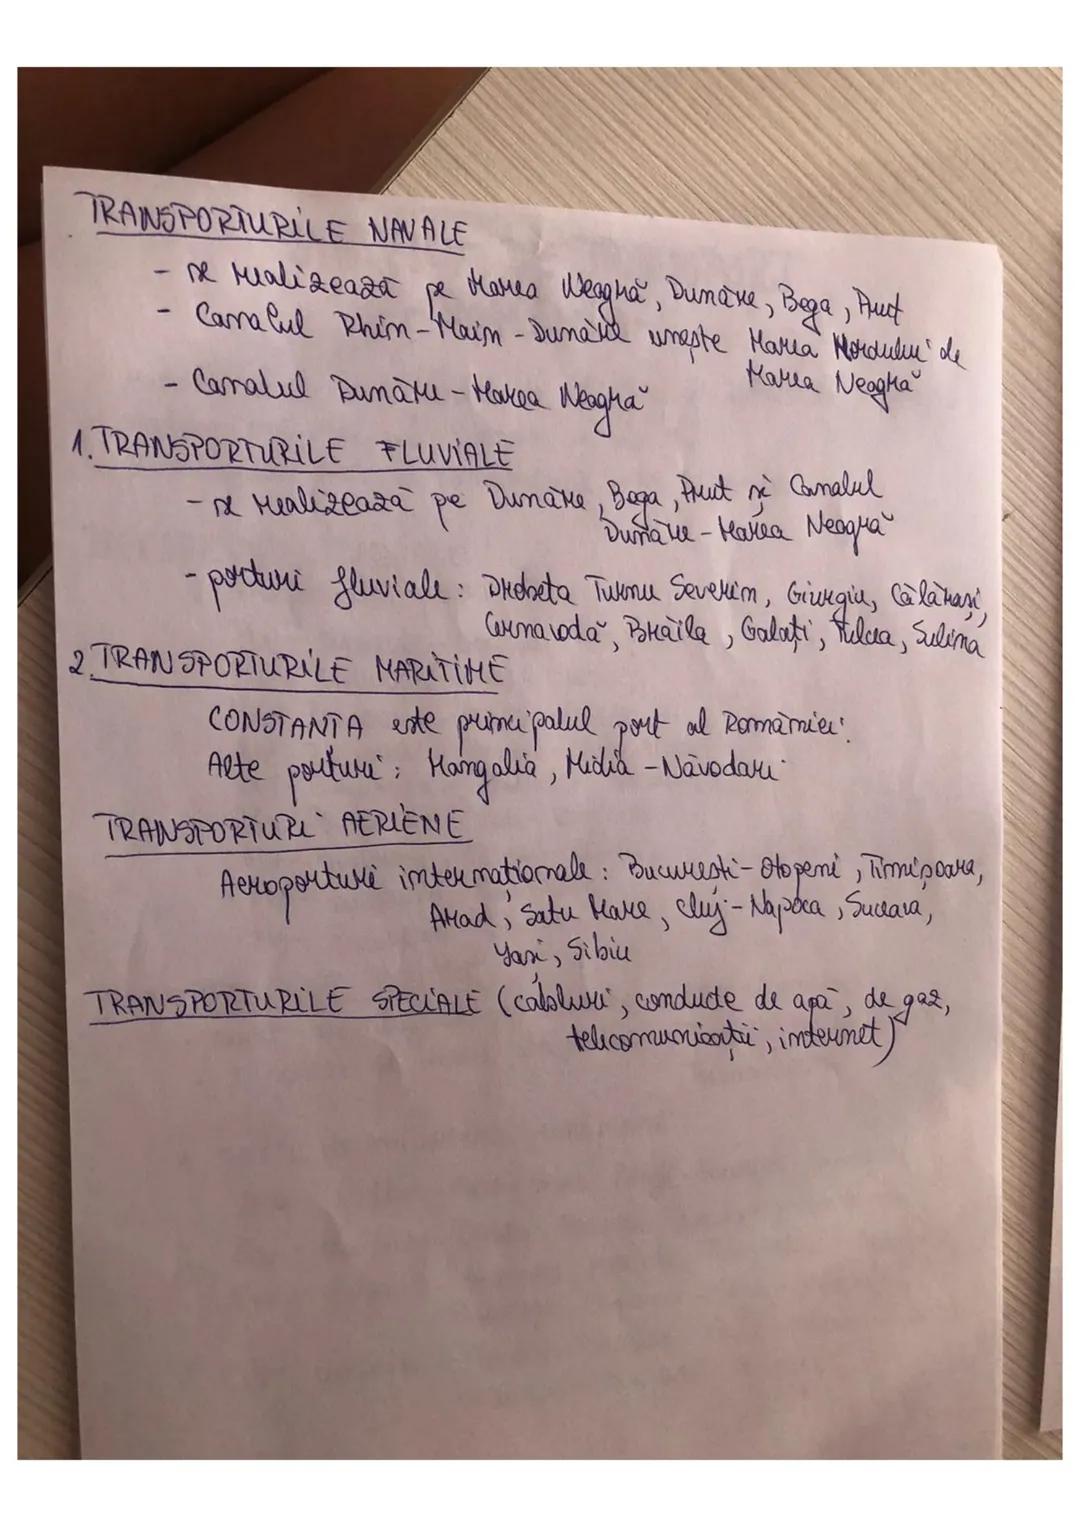 TRANSPORTURILE NAVALE
- se realizează pe Marea Neagră, Dunăre, Bega, Prut
- Canalul Rhin-Main-Dunăre unește Marea Nordului de
Marea Neagră
- Canalul Dunăre-Marea Neagră
1. TRANSPORTURILE FLUVIALE
- se realizează pe Dunăre, Bega, Prut și Canalul
Dunăre-Marea Neagră
- porturi fluviale: Drobeta Turnu Severin, Giurgiu, Călărași,
Cernavodă, Brăila, Galați, Tulcea, Sulina
2. TRANSPORTURILE MARITIME
CONSTANTA este principalul port al României.
Alte porturi: Mangalia, Midia-Năvodari
TRANSPORTURI AERIENE
Aeroporturi internaționale: București-Otopeni, Timișoara,
Arad, Satu Mare, Cluj-Napoca, Suceava,
Yași, Sibiu
TRANSPORTURILE SPECIALE (cabluri, conducte de apă, de gaz,
telecomunicații, internet)